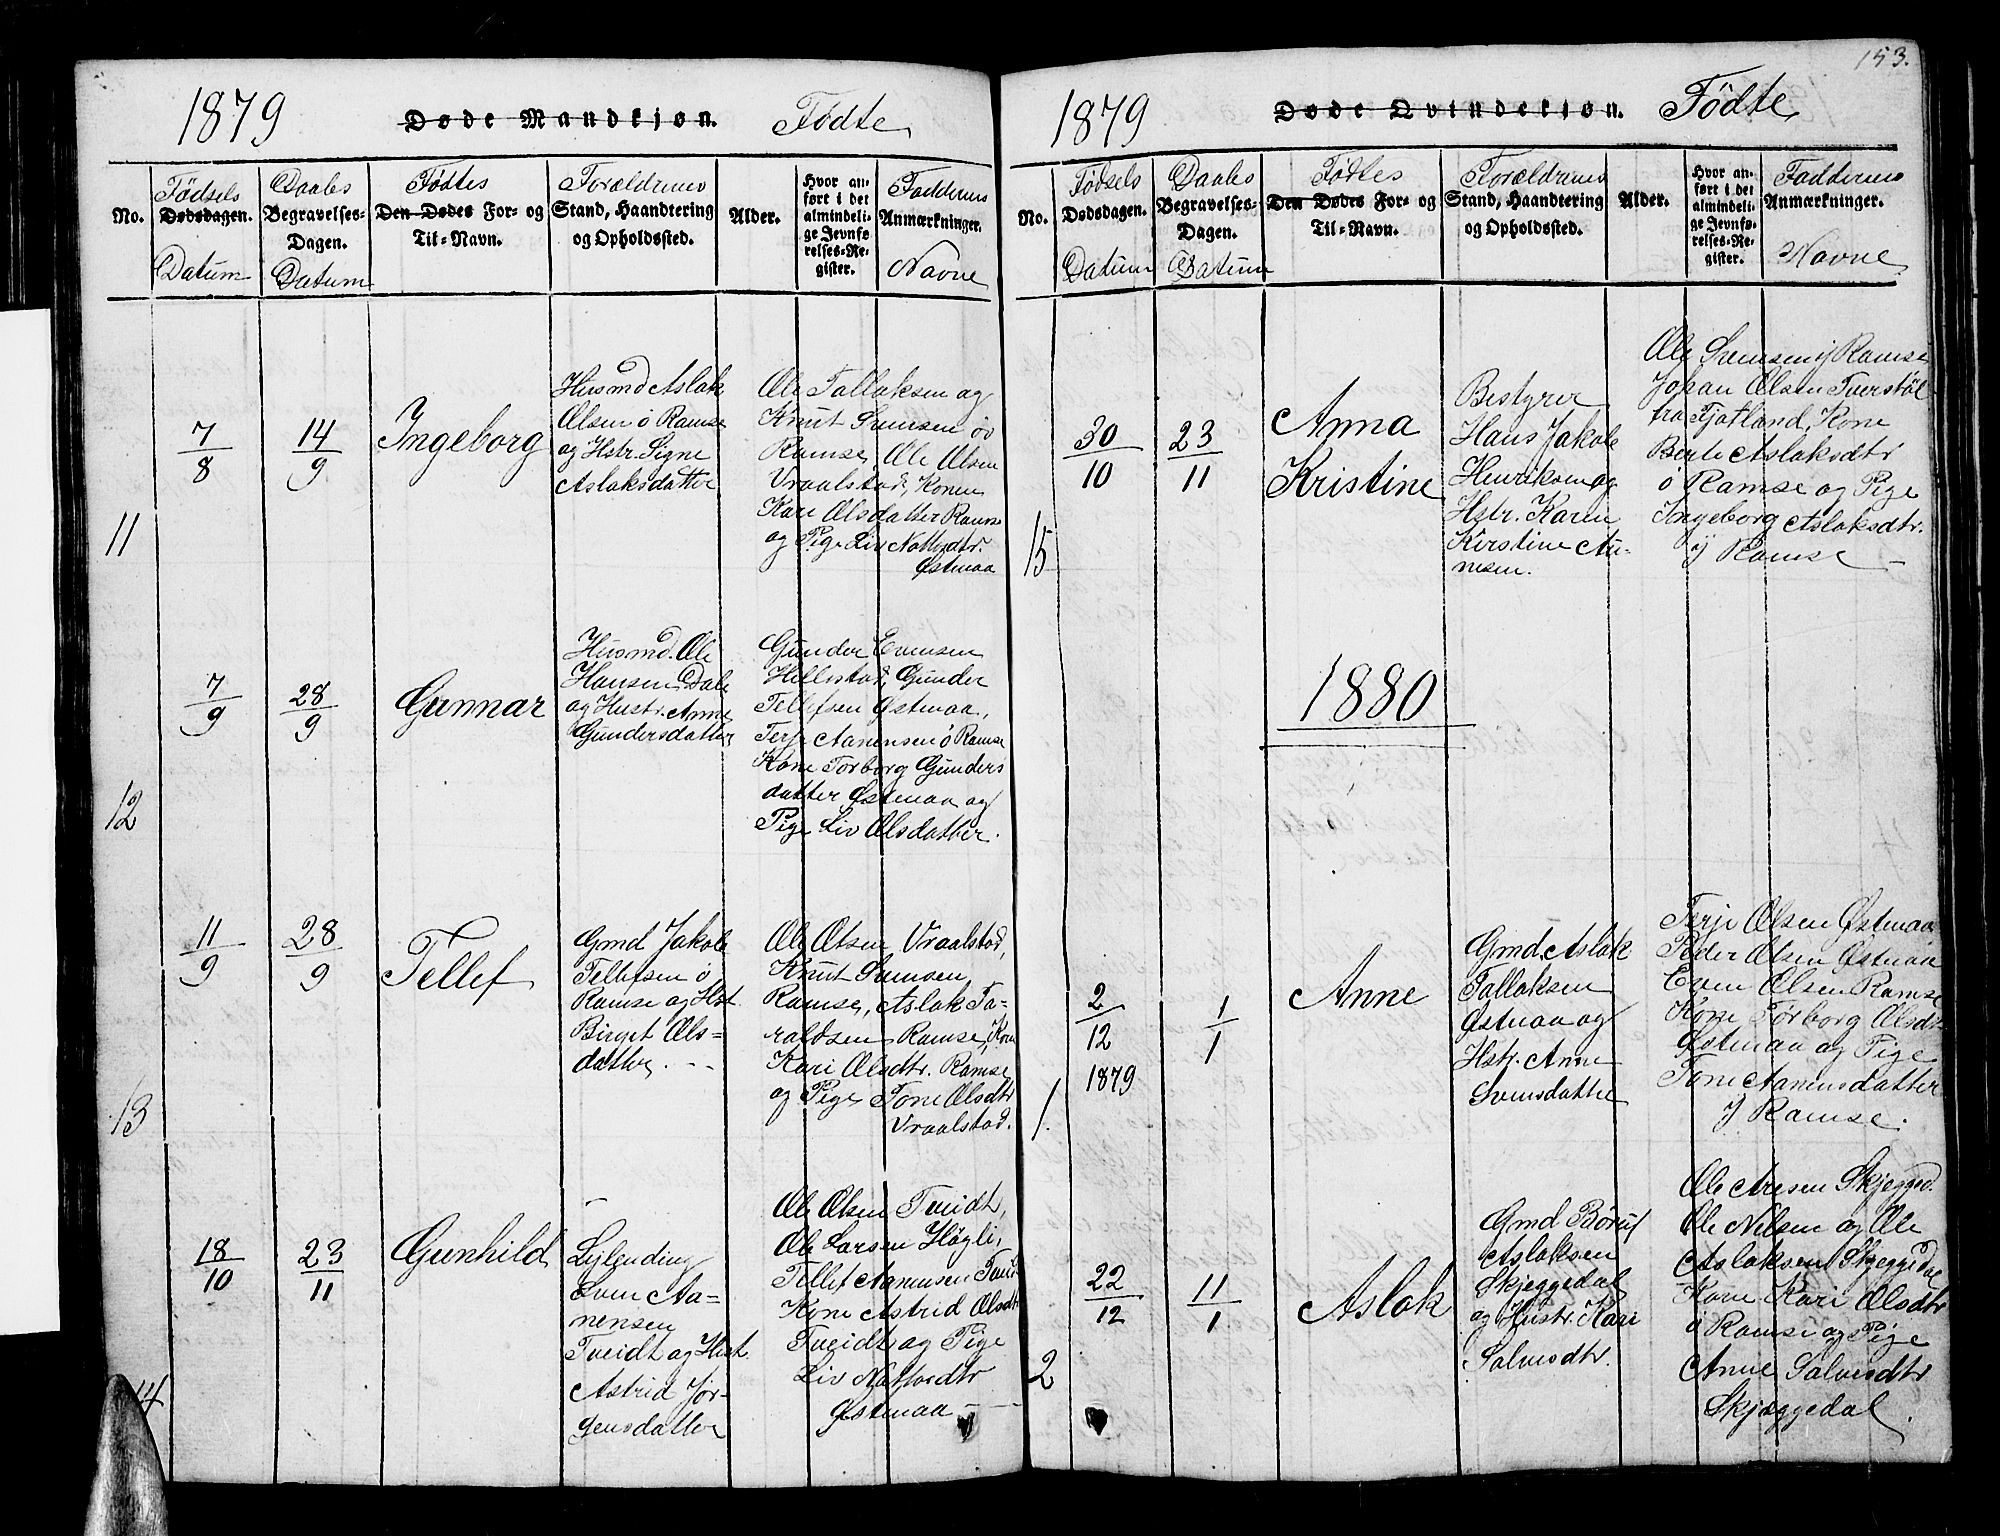 153.
1879 Døde Mandkjøn. Fødte
No.
Fødsels
Dødsdagen.
Datum
Daabs
Begravelses-
Dagen.
Datum
Fødtes
Den Dødes For- og
Til-Navn.
Forældrenes
Stand, Haandtering
og Opholdssted.
Alder.
Hvor an-
ført i det
almindeli-
ge Jevnfø-
relses-Re-
gister.
Faddernes
Anmærkninger.
Navne
11
7/8
14/9
Ingeborg
Husmd Aslak
Olsen ø Ramse
og Hstr. Signe
Aslaksdatter
Ole Tallaksen og
Knut Svensen øv
Ramse, Ole Olsen
Vraalstad, Konen
Kari Olsdatter Ramse
og Pige Liv Notvedtr.
Østenaa
12
7/9
28/9
Gunnar
Husmd. Ole
Hansen Dale
og Hustr. Anne
Gundersdatter
Gunder Evensen
Hillestad, Gunder
Tellefsen Østenaa,
Terje Aanensen ø Ramse
Kone Torborg Gunders
datter Østenaa og
Pige Liv Olsdatter.
13
11/9
28/9
Tellef
Gmd Jakob
Tellefsen ø
Ramse og Hst.
Birget Ols-
datter. - -
Ole Olsen Vraalstad,
Knut Svensen
Ramse, Aslak Ta-
raldsen Ramse, Kone
Kari Olsdtr. Ramse
og Pige Tone Olsdtr
Vraalstad.
14
18/10
23/11
Gunhild
Leilending
Sven Aa-
nensen
Tveidt og Hust.
Astrid Jør-
gensdatter
Ole Olsen Tveidt,
Ole Larsen Høgli,
Tellef Aanensen Tveidt
Kone Astrid Olsdtr
Tveidt og Pige
Liv Notvedtr
Østenaa -
1879 Døde Qvindekjøn. Fødte
No.
Fødsels
Dødsdagen.
Datum
Daabs
Begravelses-
Dagen.
Datum
Fødtes
Den Dødes For- og
Til-Navn.
Forældrenes
Stand, Haandtering
og Opholdssted.
Alder.
Hvor an-
ført i det
almindeli-
ge Jevnfø-
relses-Re-
gister.
Faddernes
Anmærkninger.
Navne
15
30/10
23/11
Anna
Kristine
Bestyrer
Hans Jakob
Henriksen og
Hstr. Karin
Kirstine Au-
nesen.
Ole Svensen y Ramse
Johan Olsen Tverstøl
fra Fjotland, Kone
Berte Aslaksdtr
ø Ramse og Pige
Ingeborg Aslaksdtr.
y Ramse -
1880
1.
2/12
1879
1/1
Anne
Gmd. Aslak
Tallaksen
Østenaa og
Hstr. Anne
Svensdatter
Terje Olsen Østenaa
Peder Olsen Østenaa
Even Olsen Ramse
Kone Torborg Olsdtr
Østenaa og Pige
Tone Aanensdatter
y Ramse.
2
22/12
11/1
Aslak
Gmd Børuf
Aslaksen
Skjeggedal
og Hustr. Kari
Salvesdtr.
Ole Aresen Skjegged.
Ole Nilsen og Ole
Aslaksen Skjeggedal
Kone Kari Olsdtr
ø Ramse og Pige
Anne Salvesdtr
Skjæggedal.